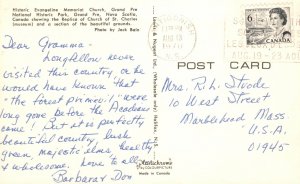 Historic Evangeline Memorial Church, Grand Pre
National Historic Park, Grand Pre, Nova Scotia,
Canada showing the Replica of Church of St. Charles
(Museum) and a section of the beautiful grounds.
Photo by Jack Bain.
Dear Gramma,
Longfellow never
visited this country, or he
would have known that
"the forest primeval" were
long gone before the Acadians
came. But it is perfectly
beautiful country, lush
green majestic elms, healthy
& wholesome. Love to all
Barbara & Don
POST CARD
Mrs. R. L. Strode
10 West Street
Marblehead Mass.
U.S.A.
01945
6
CANADA
Plastichrome
Made in Canada